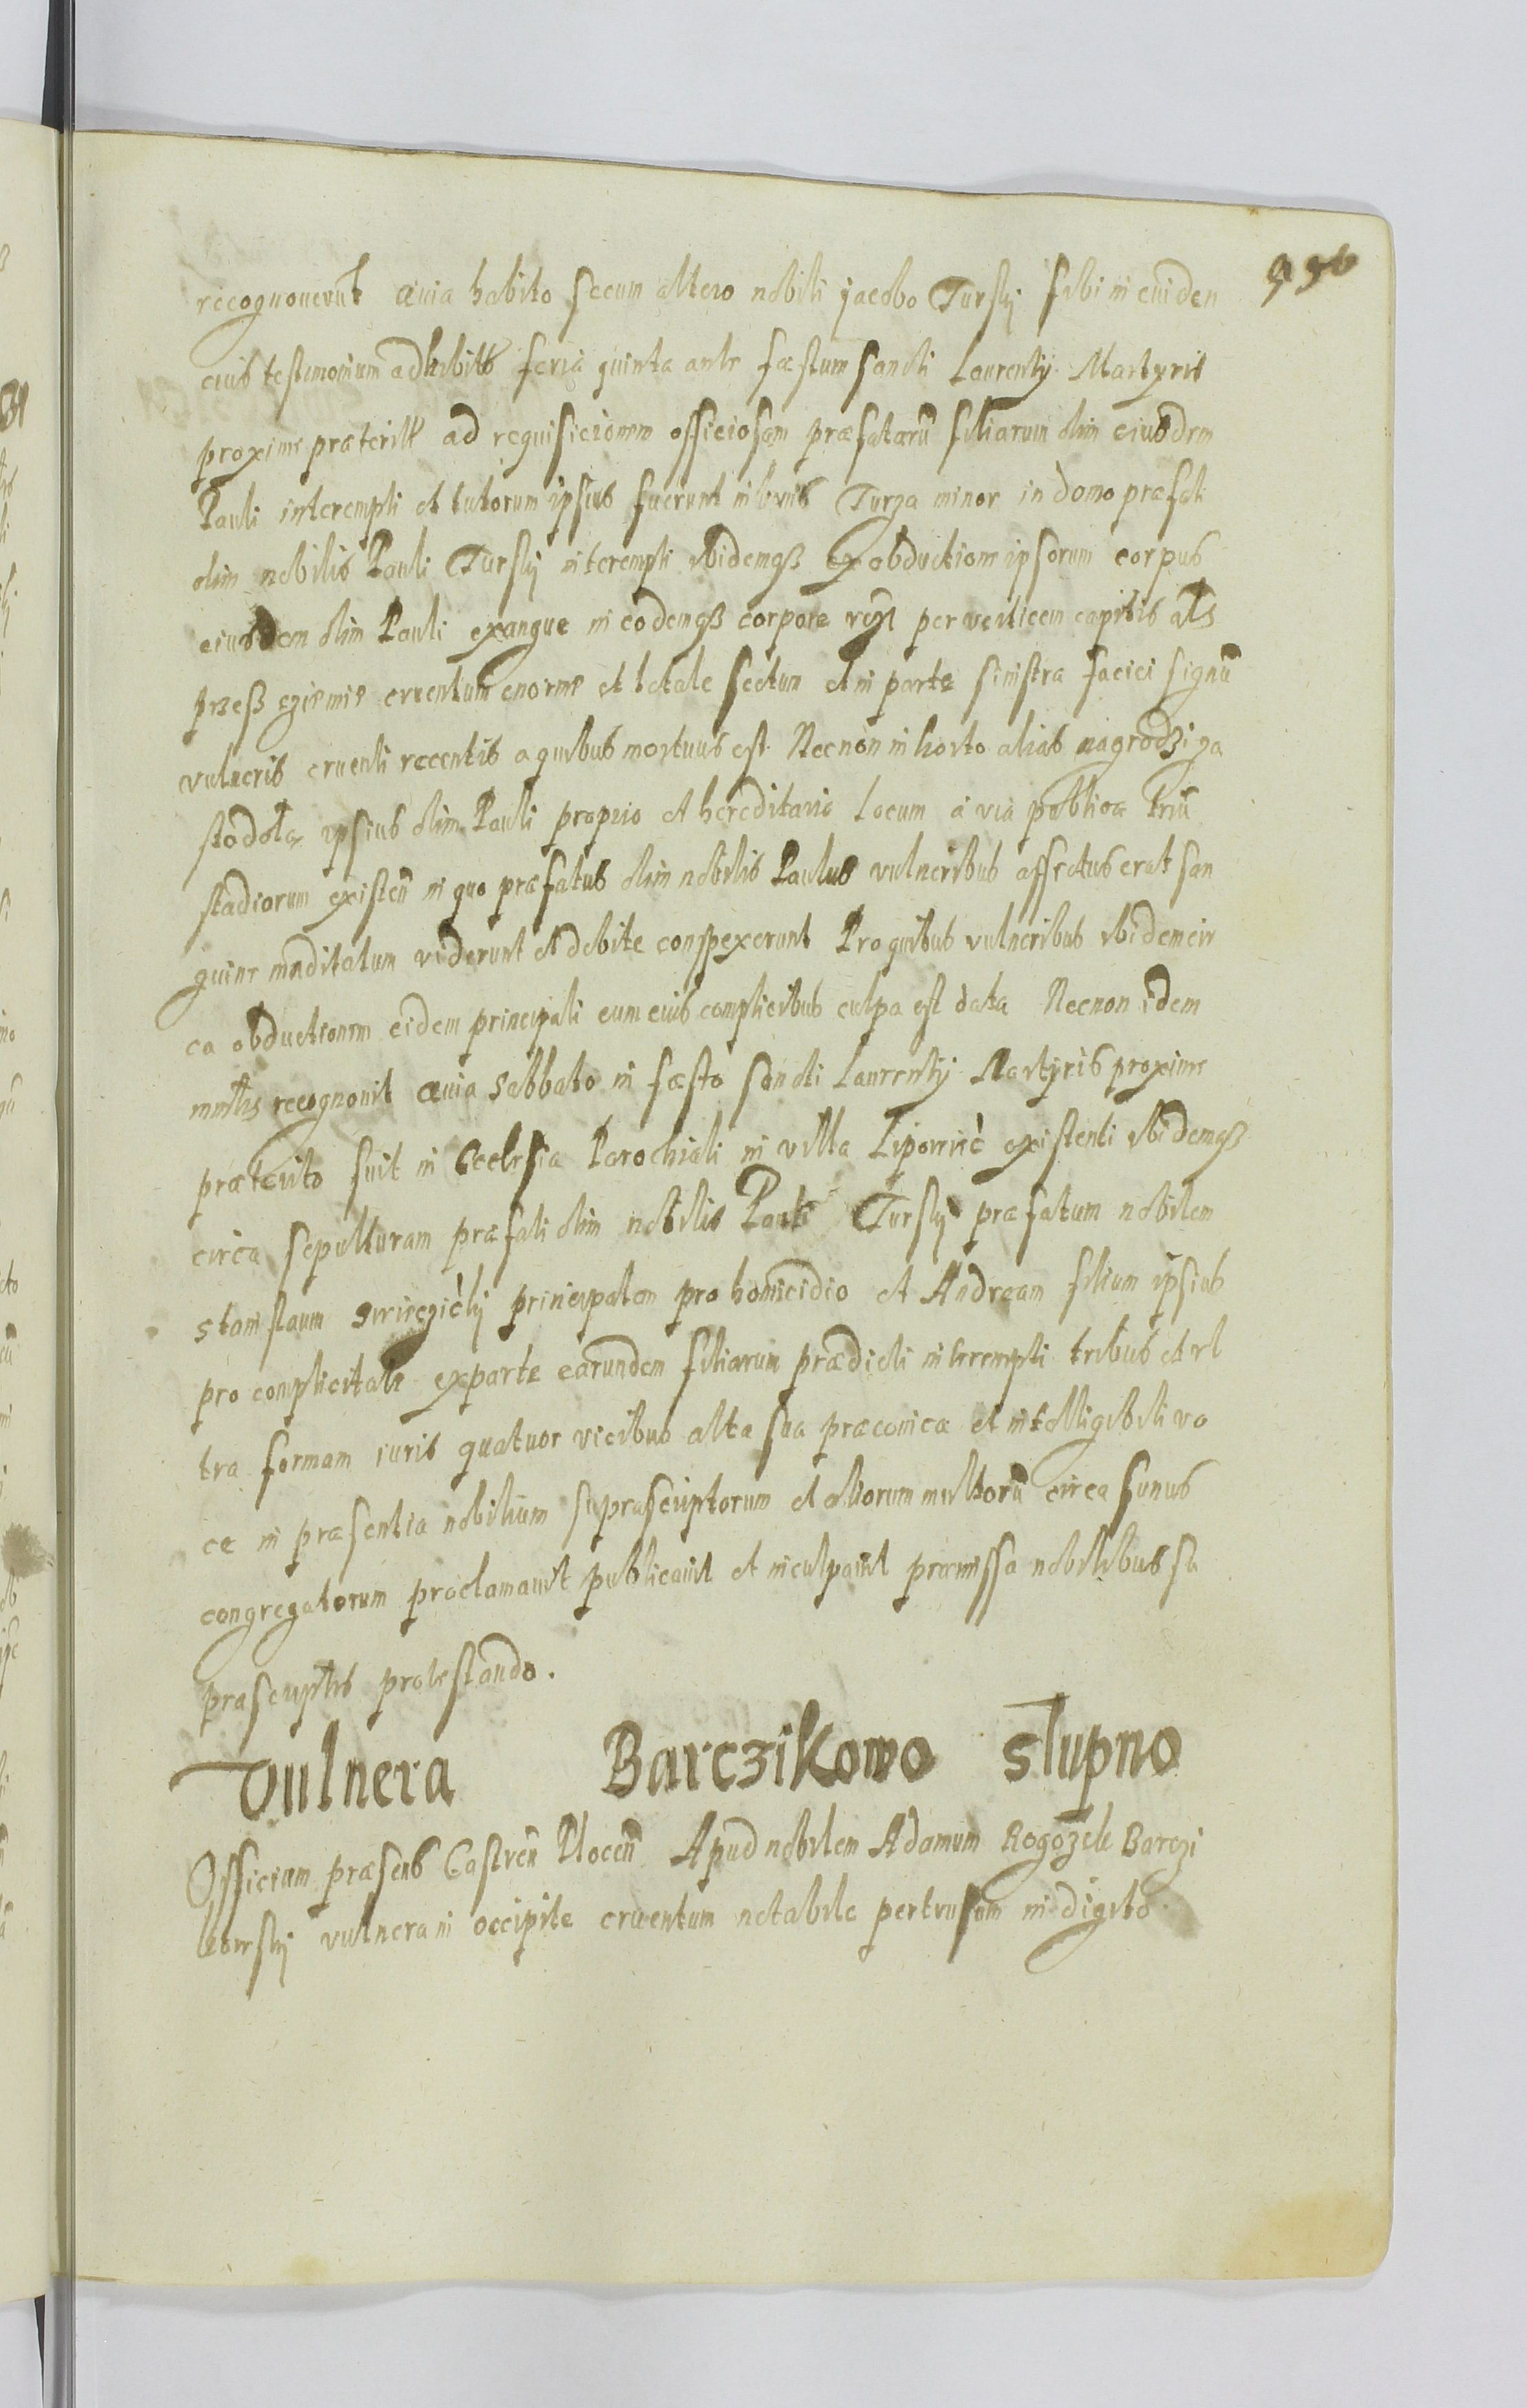 recognouerūt quia habito secum altero nobili jacobo Turskÿ sibi in euiden
cius testimonium adhibitt feria quinta ante fæstum sancti Laurentÿ Martyris
proxime præteritt ad requisicionem officiosam præfatarū filiarum olim eiusdem
Pauli interempti et tutorum ipsius fuerunt in bonis Turza minor in domo præfati
olim nobilis Pauli Turskÿ interempti ibidemqß ex obductione ipsorum corpus
eiusdem olim Pauli exangue in eodemqß corpore per verticem capitis als
przeß cziemie cruentum enorme et letale sectum et in parte sinistra faciei signū
vulneris cruenti recentis a quibus mortuus est. Necnon in horto alias nagrodzi za
stodołą ipsius olim Pauli proprio et hereditario Locum a via publica triū
stadiorum existeñ in quo præfatus olim nobilis Paulus vulneribus affectus erat san
guine viderunt et debite conspexerunt Pro quibus vulneribus ibidem cir
ca obductionem eidem principali cum euis complicibus culpa est data Necnon idem
recognouit quia sabbato in fæsto sancti Laurentÿ Martÿris proxime
præterito fuit in Ecclesia Parochiali in villa existenti ibidemqß
circa sepulturam præfati olim nobilis Pauli Turskÿ præfatum nobilem
stanislaum principalem pro homicidio et Andream filium ipsius
pro complicitate exparte earundem filiarum prædicti interempti tribus et vl
tra formam iuris quatuor vicibus alta sua præconica et intelligibili vo
ce in præsentia nobilium suprascriptorum et aliorum multorū circa funus
congregatorum proclamauit publicauit et inculpauit præmissa nobilibus su
prascriptis protestando.
Vulnera Barczikowo słupno
Officium præsens Castreñ Ploceñ Apud nobilem Adamum Rogozek Barczi
kowskÿ vulnera in occipite cruentum notabile pertusum in digito